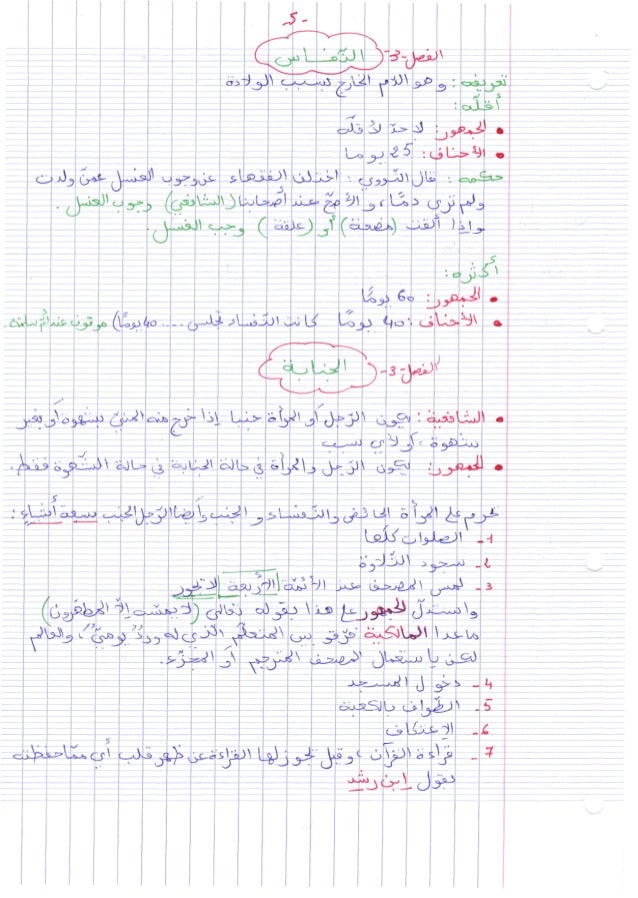 -5-
الفصل-3- النّفاس
تعريفه: وهو الدم الخارج بسبب الولادة
أقلّه:
• الجمهور: لا حدّ لأقلّه
• الأحناف: 25 يوما
حكمه: قال النّووي: اختلف الفقهاء عن وجوب الغسل عمّن ولدت
ولم ترى دمًا، والأصحّ عند أصحابنا (الشافعي) وجوب الغسل.
وإذا ألقت (مضغة) أو (علقة) وجب الغسل.
أكثره:
• الجمهور: 60 يومًا
• الأحناف: 40 يومًا كانت النّفساء تجلس .... 40 يومًا) موقوف عند أم سلمة.
الفصل-3- الجنابة
• الشافعية: يكون الرّجل أو المرأة جنبا إذا خرج منه المنيّ بشهوة أو بغير
شهوة، أو لأي سبب
• الجمهور: يكون الرّجل والمرأة في حالة الجنابة في حالة الشّهوة فقط.
تحرم على المرأة الحائض والنّفساء والجنب وأيضا الرّجل الجنب سبعة أشياء:
1- الصلوات كلّها
2- سجود التّلاوة
3- لمس المصحف عند الأئمّة الأربعة لا تجوز
واستدلّ الجمهور على هذا بقوله تعالى (لا يمسّه إلاّ المطهّرون)
ماعدا المالكية فرّقو بين المتعلّم الذي له وردٌ يوميٌّ، والعالم
لكن باستعمال المصحف المترجم أو المجزّء.
4- دخول المسجد
5- الطّواف بالكعبة
6- الإعتكاف
7- قراءة القرآن، وقيل تجوز لها القراءة عن ظهر قلب أي ممّا حفظته
يقول ابن رشد